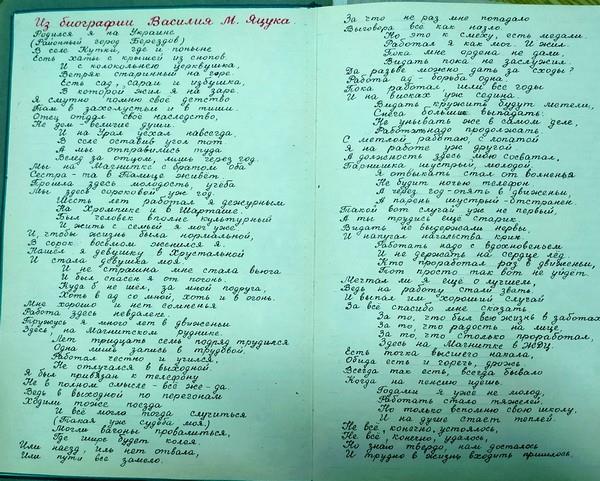 Из биографии Василия М. Яцука
Родился я на Украине
(Районный город Берездов)
В селе Кутки, где и поныне
Есть хаты с крышей из снопов.
И с колокольнею церквушка,
Ветряк старинный на горе.
Есть сад, сарай и избушка,
В которой жил я на заре.
Я смутно помню свое детство
Там в захолустьи и в тиши.
Отец отдал свое наследство,
Не дом - великие души.
И на Урал уехал навсегда,
В селе оставив угол тот
А мы отправились туда
Вслед за отцом, лишь через год.
Мы на Магнитке с братом оба
Сестра - та в Тагиле живёт.
Прошла здесь молодость, учеба
Мы здесь сороковой уж год
Шесть лет работал я дежурным
На Хромпике и в Шарташе.
Был человек вполне культурный
И жить с семьей я мог уже.
И, чтобы жизнь была нормальной,
В сорок восьмом женился я.
Нашел я девушку в Хрустальной
И стала девушка моя.
И не страшна мне стала вьюга
И был спасен я от погонь.
Куда б не шел, за мной подруга,
Хоть в ад со мной, хоть и в огонь.
Мне хорошо и нет сомненья
Работа здесь невдалеке.
Тружусь я много лет в движеньи
Здесь, на Магнитском руднике.
Лет тридцать семь подряд трудился
Одна лишь запись в трудовой.
Работал честно и учился,
Не отлучался в выходной.
Я был привязан к телефону
Не в полном смысле - всё же - да.
Ведь в выходной по перегонам
Ходили тоже поезда
И всё могло тогда случиться
(Такая уже судьба моя)
Могли вагоны провалиться,
Где шире будет колея.
Или наезд, иль нет отвала,
Или пути все замело.
За что не раз мне попадало
Выговора всё как назло.
Но это к смеху, есть медали.
Работал я как мог. И жил.
Пока мне ордена не дали,
Видать пока не заслужил.
Да разве можно дать за "сходы"?
Работа ад - борьба одна.
Пока работал, шли все годы
И на висках уж седина
Видать кружить будут метели,
Снега большие выпадать.
Не унывать же в самом деле,
Работать надо продолжать.
С метлой работаю, с лопатой
Я на работе уж другой
А должность здесь мою сосватал,
Парнишка шустрый, молодой.
Я отвыкать стал от волненья
Не будит ночью телефон
А через год - опять в движеньи,
А парень шустрый - отстранен.
Такой вот случай уж не первый,
А ты трудись ещё старик.
Видать не выдержали нервы,
И напугал начальства крик.
Работать надо с вдохновеньем
И не держать на сердце лёд.
Кто проработал раз в движеньи,
Тот просто так вот не уйдёт.
Мечтал ли я ещё о лучшем,
Ведь на работу стали звать.
И выпал им "хороший" случай
За всё спасибо мне сказать
За то, что был всю жизнь в заботах
За то, что радость на лице,
За то, что столько проработал,
Здесь на Магнитке в ЖДЦ.
Есть точка высшего накала,
Обида есть и горечь, дрожь.
Всегда так есть, всегда бывало
Когда на пенсию идёшь.
Годами я уже не молод,
Работать стало тяжелей.
Но только вспомню свою школу,
И на душе стает теплей.
Не всё, конечно, устоялось,
Не всё, конечно, удалось,
Но знаю твердо, нам досталось
И трудно в жизнь входить пришлось.